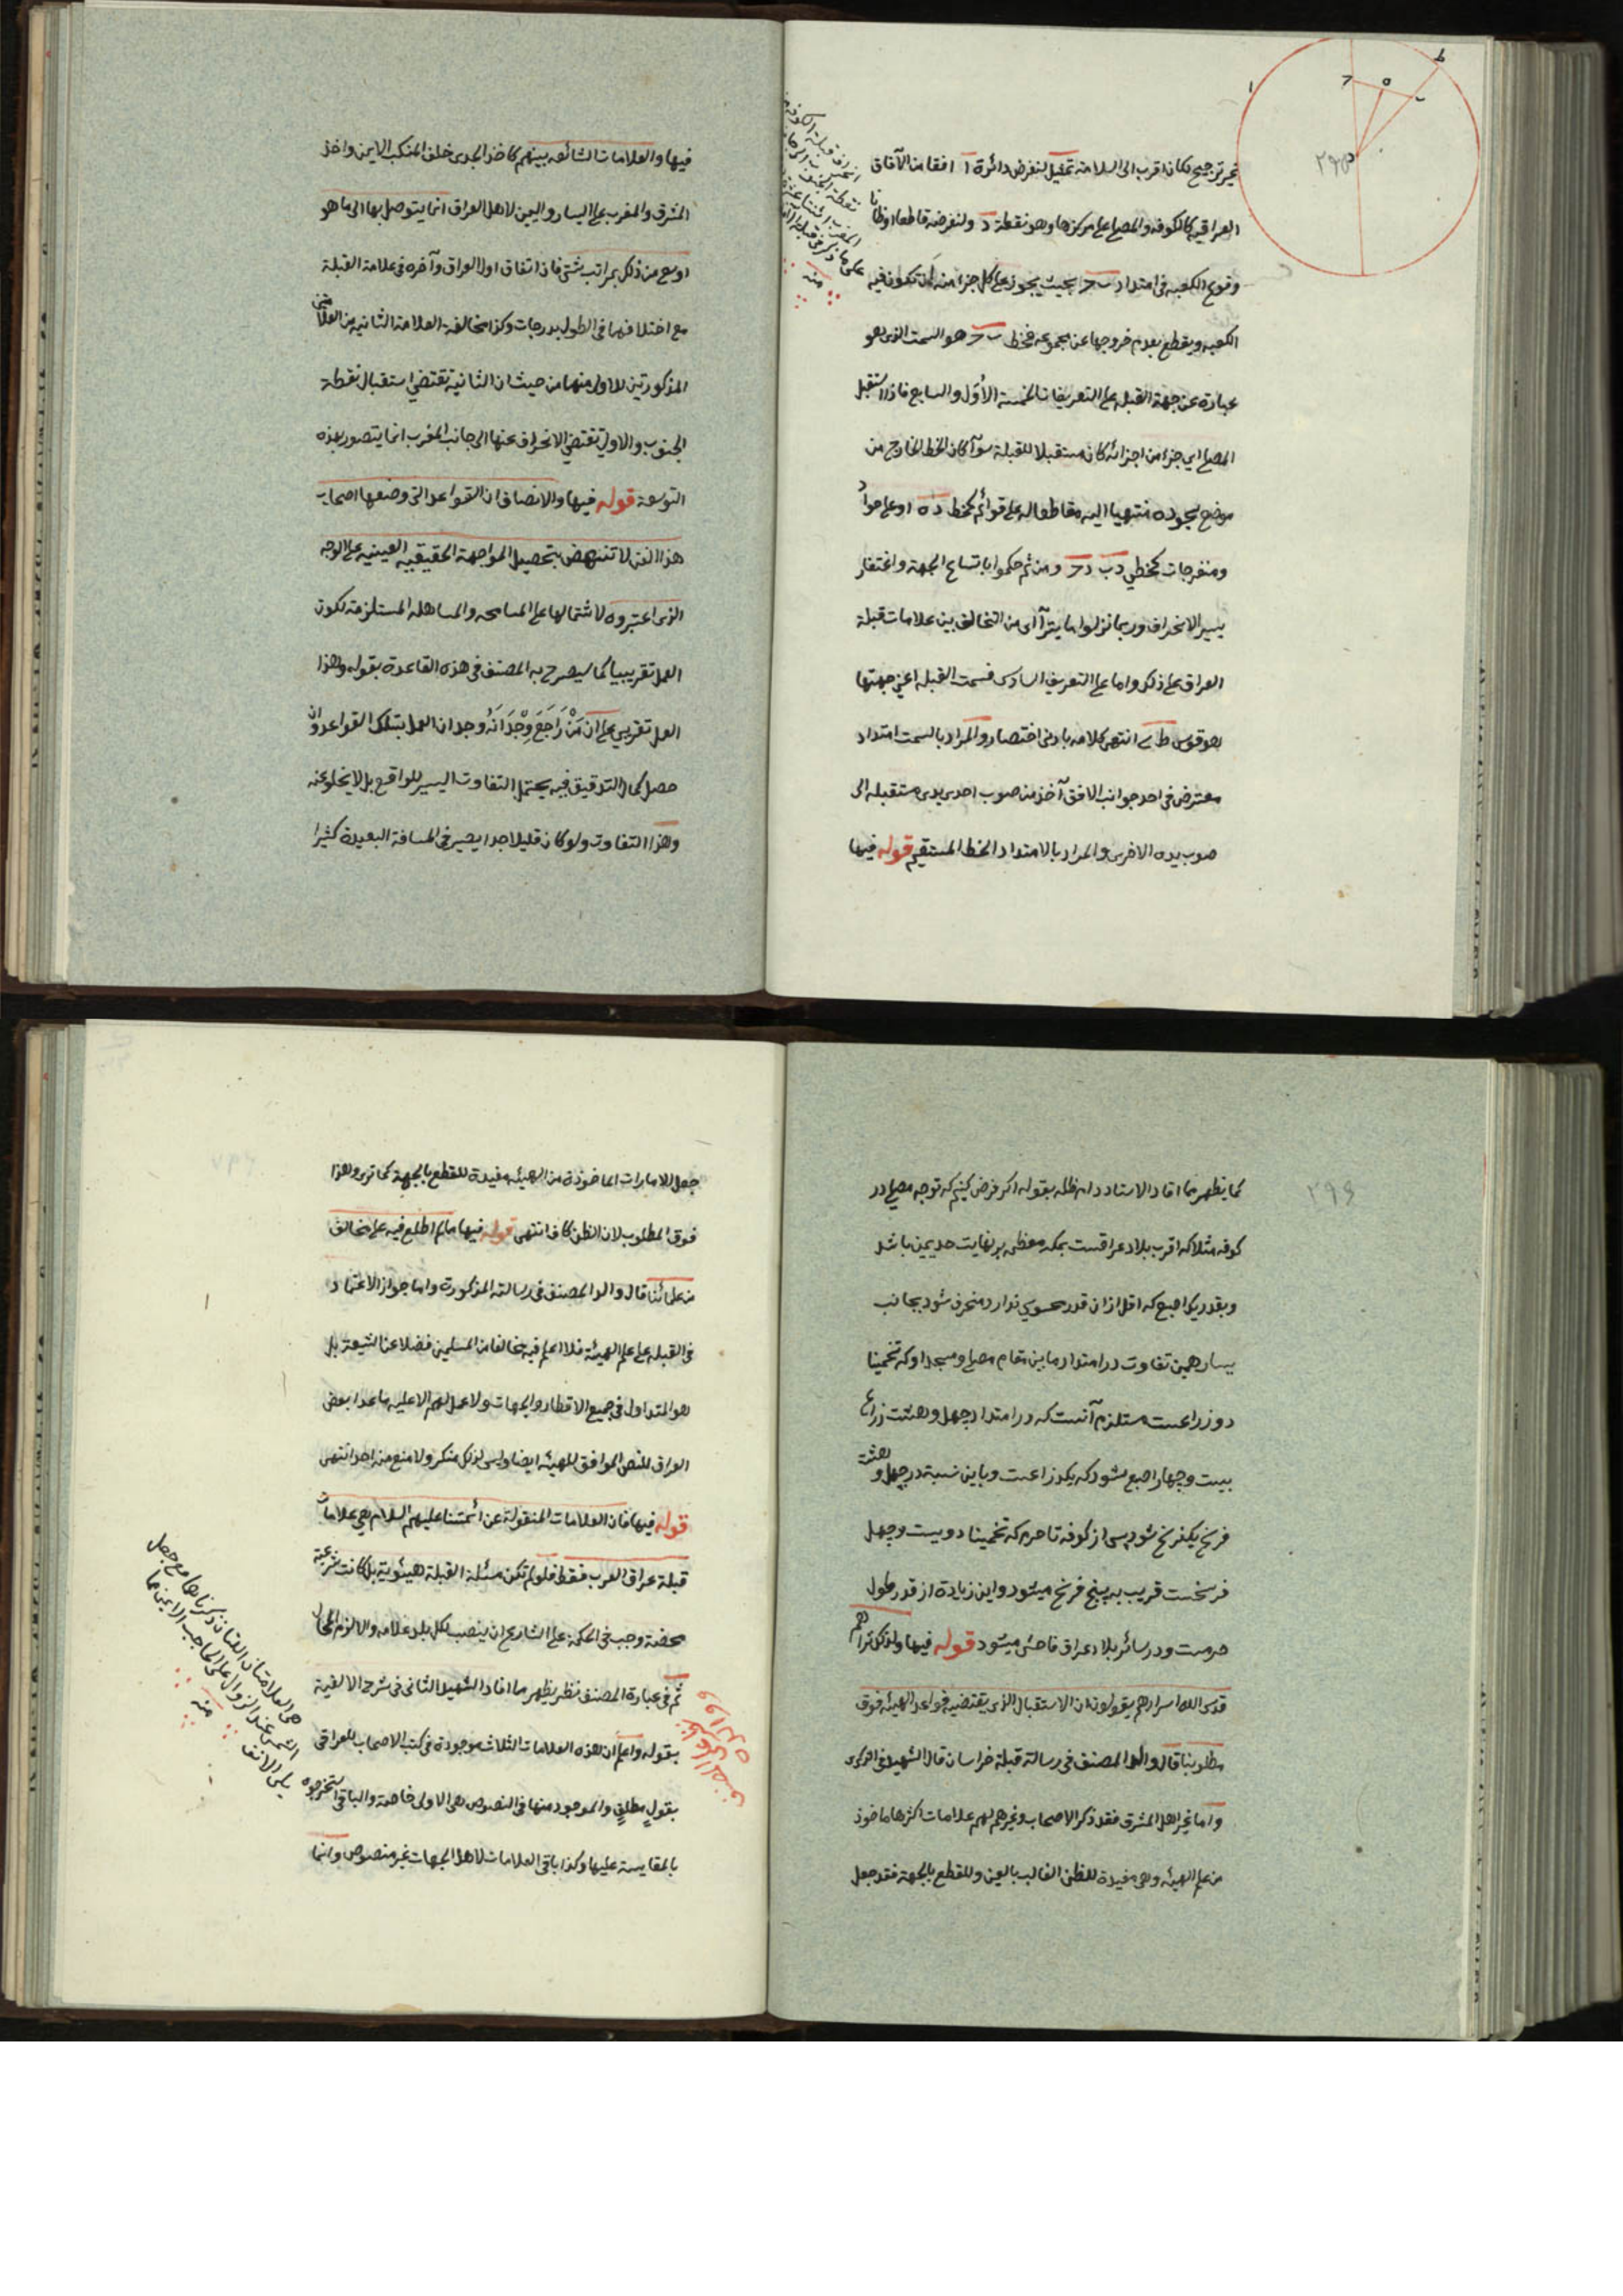 غير ترجيح لكان اقرب الى السلامة تمثيل لنفرض دائرة ا افقا من الآفاق
العراقية كالكوفة والمصلي على مركزها وهو نقطة د ولنفرضه قاطعا او ظانا
وقوع الكعبة في امتداد ب ح بحيث يجوز على كل جزء منه ان تكون فيه
الكعبة ويقطع بعدم خروجها عن مجموعه فخط ب ح هو السمت الذي هو
عبارة عن جهة القبلة على التعريفات الخمسة الأول والسابع فاذا استقبل
المصلي اي جزء من اجزائه كان مستقبلا للقبلة سوآء كان الخط الخارج من
موضع سجوده منتهيا اليه مقاطعا له على قوائم كخط د ه او على حوادّ
ومنفرجات كخطي د ب د ح ومن ثم حكموا باتساع الجهة واغتفار
يسير الانحراف وربما نزلوا ما يترآاى من التخالف بين علامات قبلة
العراق على ذلك واما على التعريف السادس فسمت القبلة اعني جهتها
هو قوس ط ى انتهى كلامه بادنى اختصار والمراد بالسمت امتداد
معترض في احد جوانب الافق آخذ من صوب احدى يدى مستقبله الى
صوب يده الاخرى والمراد بالامتداد الخط المستقيم قوله فيها
فيها والعلامات الشائعه بينهم كاخذ الجدى خلف المنكب الايمن واخذ
المشرق والمغرب على اليسار واليمين لاهل العراق انما يتوصل بها الى ما هو
اوسع من ذلك بمراتب شتى فاذا اتفاق اول العراق وآخره في علامة القبلة
مع اختلافهما في الطول بدرجات وكذا مخالفة العلامة الثانيه من العلامتين
المذكورتين للاولى منهما من حيث ان الثانية تقتضي استقبال نقطة
الجنوب والاولى تقتضي الانحراف عنها الى جانب المغرب انما يتصور بهذه
التوسعة قوله فيها والانصاف ان القواعد التي وضعها اصحاب
هذا الفن لا تنتهض بتحصيل المواجهة الحقيقيه العينيه على الوجه
الذى اعتبروه لاشتمالها على المسامحه والمساهله المستلزمة لكون
العمل تقريبيا كما سيصرح به المصنف في هذه القاعدة بقوله وهذا
العمل تقريبي على ان مَنْ رَاجَعَ وِجْدَانَهُ وجد ان العمل بتلك القواعد وان
حصل كمال التدقيق فيه يحتمل التفاوت اليسير للواقع بل لا يخلو عنه
وهذا التفاوت ولو كان قليلا جدا يصير في المسافة البعيدة كثيرا
٢٩٦
كما يظهر مما افاد الاستاد دام ظله بقوله اكر فرض كنيم كه توجه مصلي در
كوفه مثلا كه اقرب بلاد عراقست بمكه معظمه بر نهايت حد يمين باشد
وبقدر يك اصبع كه اقل از ان قدر محسوسي ندارد منحرف شود بجانب
يسار همين تفاوت در امتداد ما بين مقام مصلي ومسجد او كه تخمينا
دو زراعست مستلزم آنست كه در امتداد چهل وهشت زراع
بيست وچهار اصبع شود كه يكذراعست وباين نسبة در چهل وهشت
فرسخ يكفرسخ شود پس از كوفه تا حرم كه تخمينا دويست وچهل
فرسخست قريب به پنج فرسخ ميشود واين زياده از قدر طول
حرمست ودر سائر بلاد عراق فاحش ميشود قوله فيها ولذلك تراهم
قدس الله اسرارهم يقولون ان الاستقبال الذى يقتضيه قواعد الهيئه فوق
مطلوبنا قال والد المصنف في رسالة قبلة خراسان قال الشهيد في الذكرى
واما غير اهل المشرق فقد ذكر الاصحاب وغيرهم لهم علامات اكثرها ماخوذ
من علم الهيئه وهى مفيدة للظن الغالب بالعين وللقطع بالجهة فقد جعل
جعل الامارات الماخوذة من الهيئه مفيدة للقطع بالجهة كما ترى وهذا
فوق المطلوب لان الظن كاف انتهى قوله فيها مالم اطلع فيه على مخالف
من علمائنا قال والد المصنف في رسالته المذكورة واما جواز الاعتماد
في القبلة على علم الهيئة فلا اعلم فيه مخالفا من المسلمين فضلا عن الشيعة بل
هو المتداول في جميع الاقطار والجهات ولا عمل لهم الا عليه ما عدا بعض
العراق للنص الموافق للهيئه ايضا وليس لذلك منكر ولا منع منه احد انتهى
قوله فيها فان العلامات المنقولة عن أئمتنا عليهم السلام هى علامات
قبلة عراق العرب فقط فلو لم تكن مسئلة القبلة هيئوية بل كانت شرعية
محضة وجب في الحكمة على الشارع ان ينصب لكل بلد علامه والا لزم المحال
ثم في عبارة المصنف نظر يظهر مما افاد الشهيد الثاني في شرح الالفية
بقوله واعلم ان هذه العلامات الثلاث موجودة في كتب الاصحاب للعراقي
بقولٍ مطلقٍ والموجود منها في النصوص هى الاولى خاصة والباقي استخرجوه
بالمقايسة عليها وكذا باقي العلامات لاهل الجهات غير منصوص وانما
هى العلامتان اللتان ذكرناها مع جعل
الشمس عند الزوال على الحاجب الايمن مما
يلي الانف
منه